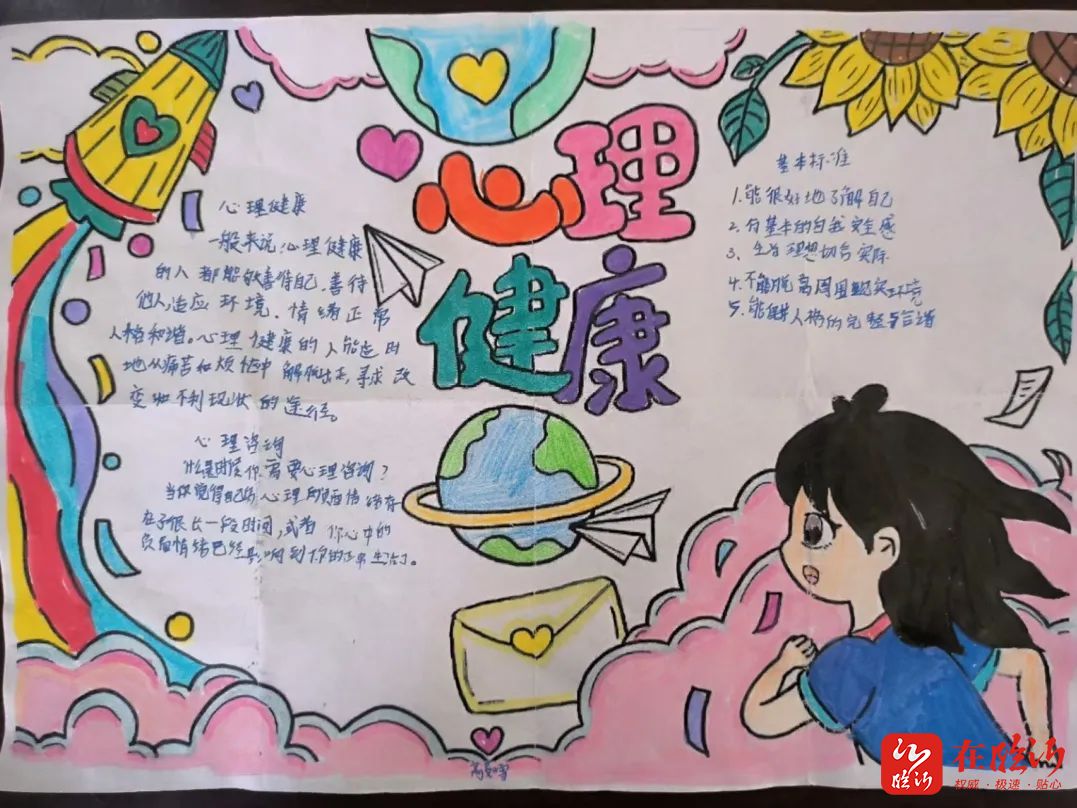 心理
健康
心理健康
一般来说,心理健康
的人都能够善待自己,善待
他人,适应环境,情绪正常
人格和谐。心理健康的人能适时
地从痛苦和烦恼中解脱出来,寻求改
变不利现状的途径。
心理咨询
什么时候你需要心理咨询?
当你觉得自己的心理负面情绪存
在了很长一段时间,或者你心中的
负面情绪已经影响到你的正常生活了。
基本标准
1.能很好地了解自己
2.有基本的自我安全感
3、生活理想切合实际
4.不能脱离周围现实环境
5.能保持人格的完整与合谐
在临沂
临沂
权威·极速·贴心